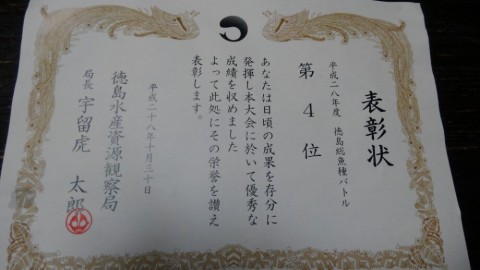 表彰状
平成二八年度 徳島総魚種バトル
第4位
あなたは日頃の成果を存分に
発揮し本大会に於いて優秀な
成績を収めました
よって此処にその栄誉を讃え
表彰します。
平成二十八年十月三十日
徳島水産資源観察局
局長 宇留虎 太郎